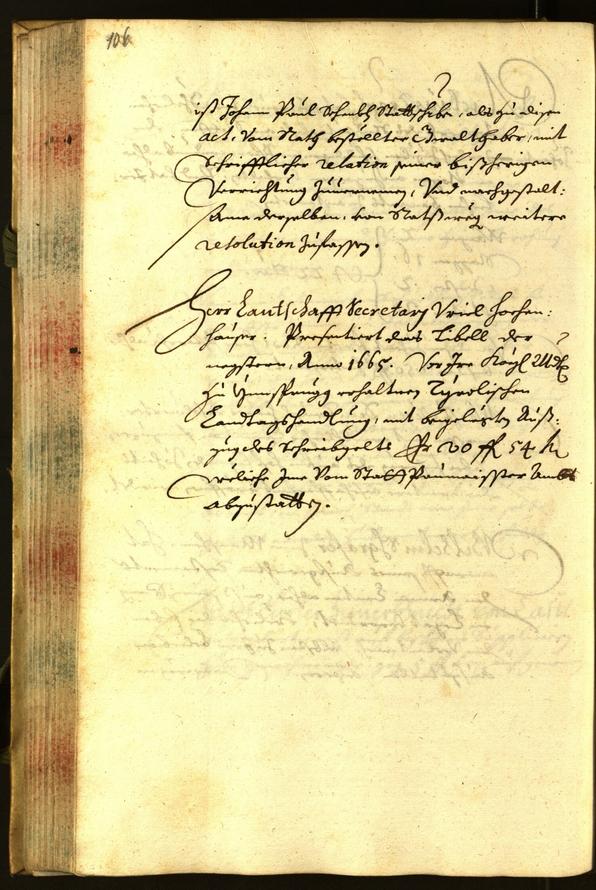 106
ist Johann Paul Schmbl Stattschrbr, als zu disen
act, vom Rath bestellter Gwalthaber, mit
schrifftlicher relation seiner bißherigen
Verrichtung zuuernemen, Vnd nachgestalt:
same derselben, von Statß weg weitere
resolution zufassen.
Herr Lantschafft Secretarj Vriel hochen:
hauser. Presentiert das Libell der
negstern, Anno 1665. Vor Jre Kayl: Mt:
zu Ynnsprugg erhaltnen Tyrolischen
Landtagshandlung, mit beygelegten Auß:
zug des schreibgelts Pr 20 fl 54 kr
weliche Jme vom Statt Paumaister Ambt
abzustatten.